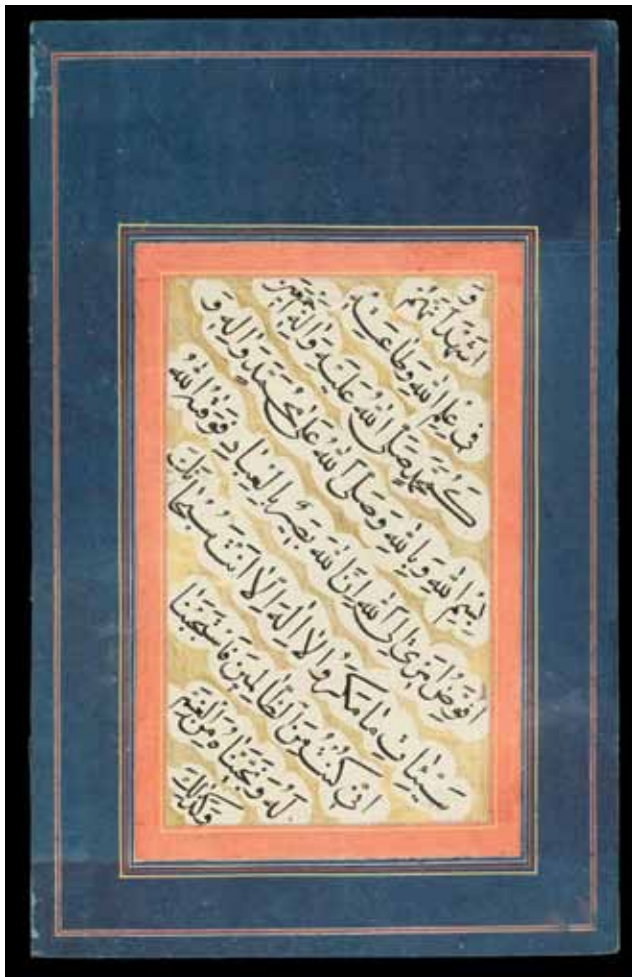 وَ
اَشْهَدُ اَنَّهُمْ
فِي عِلْمِ اللهِ وَطَاعَتِهِ
كَمُحَمَّدٍ صَلَّى اللهُ عَلَيْهِ وَاٰلِهِ اَجْمَعِينَ
بِسْمِ اللهِ وَبِاللهِ وَصَلَّى اللهُ عَلٰى مُحَمَّدٍ وَاٰلِهِ وَ
اُفَوِّضُ اَمْرِي اِلَى اللهِ اِنَّ اللهَ بَصِيرٌ بِالْعِبَادِ فَوَقٰيهُ اللهُ
سَيِّئَاتِ مَا مَكَرُوا لَا اِلٰهَ اِلَّا اَنْتَ سُبْحَانَكَ
اِنِّي كُنْتُ مِنَ الظَّالِمِينَ فَاسْتَجَبْنَا
لَهُ وَنَجَّيْنَاهُ مِنَ الْغَمِّ
وَكَذٰلِكَ